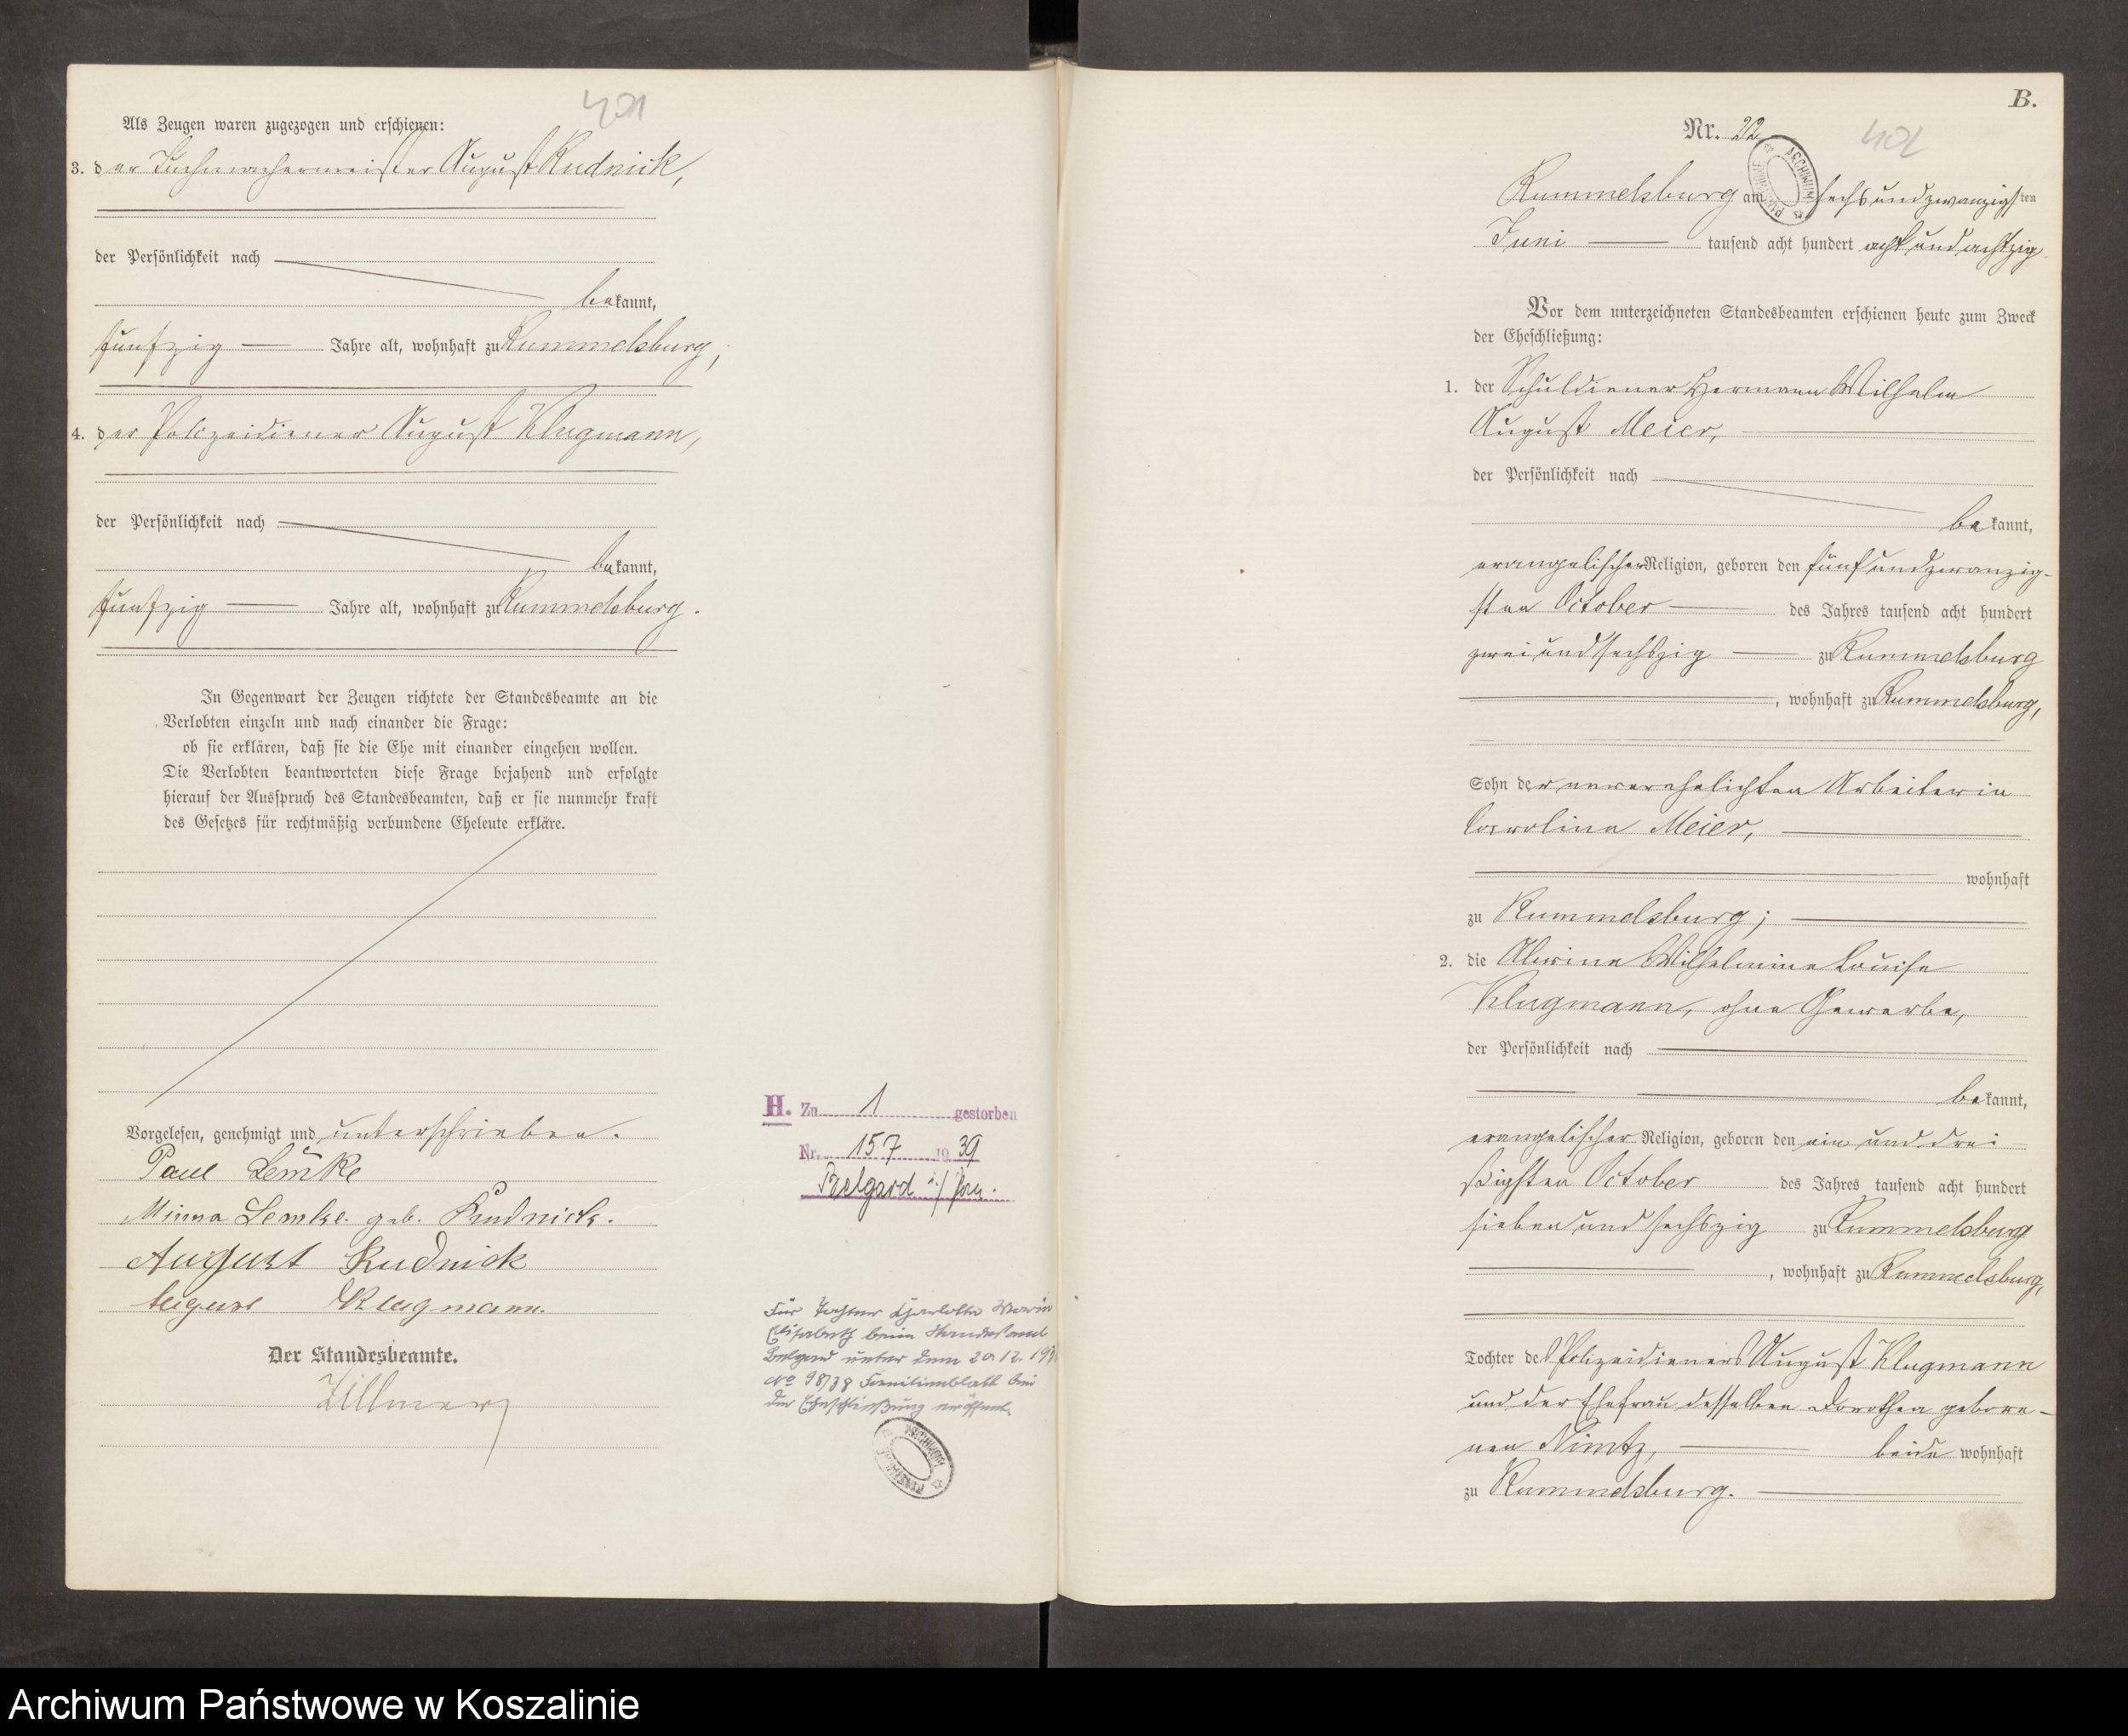 401
Als Zeugen waren zugezogen und erschienen:
3. der Tuchmachermeister August Rudnick,
der Persönlichkeit nach
bekannt,
fünfzig Jahre alt, wohnhaft zu Rummelsburg,
4. der Polizeidiener August Klugmann,
der Persönlichkeit nach
bekannt,
fünfzig Jahre alt, wohnhaft zu Rummelsburg.
In Gegenwart der Zeugen richtete der Standesbeamte an die
Verlobten einzeln und nach einander die Frage:
ob sie erklären, daß sie die Ehe mit einander eingehen wollen.
Die Verlobten beantworteten diese Frage bejahend und erfolgte
hierauf der Ausspruch des Standesbeamten, daß er sie nunmehr kraft
des Gesetzes für rechtmäßig verbundene Eheleute erkläre.
Vorgelesen, genehmigt und unterschrieben.
Paul Lemke
Minna Lemke. geb. Rudnick.
August Rudnick
August Klugmann.
Der Standesbeamte.
Zillmer
H. Zu 1 gestorben
Nr. 157 1939
Belgard i/ Pom.
Für Tochter Charlotte Maria
Elisabeth beim Standesamt
Belgard unter dem 20.12.19
No 98/38 Familienblatt bei
der Eheschließung eröffnet.
ARCHIWUM
B.
Nr. 22
402
ARCHIWUM
Rummelsburg am sechsundzwanzigsten
Juni tausend acht hundert acht und achtzig
Vor dem unterzeichneten Standesbeamten erschienen heute zum Zweck
der Eheschließung:
1. der Schuldiener Hermann Wilhelm
August Meier,
der Persönlichkeit nach
bekannt,
evangelischer Religion, geboren den fünfundzwanzig-
sten October des Jahres tausend acht hundert
zwei und sechszig zu Rummelsburg
, wohnhaft zu Rummelsburg,
Sohn der unverehelichten Arbeiterin
Caroline Meier,
wohnhaft
zu Rummelsburg;
2. die Alwine Wilhelmine Louise
Klugmann, ohne Gewerbe,
der Persönlichkeit nach
bekannt,
evangelischer Religion, geboren den ein und drei
ßigsten October des Jahres tausend acht hundert
sieben und sechszig zu Rummelsburg
, wohnhaft zu Rummelsburg,
Tochter des Polizeidieners August Klugmann
und der Ehefrau desselben Dorothea gebore-
nen Nimtz, beide wohnhaft
zu Rummelsburg.
Archiwum Państwowe w Koszalinie